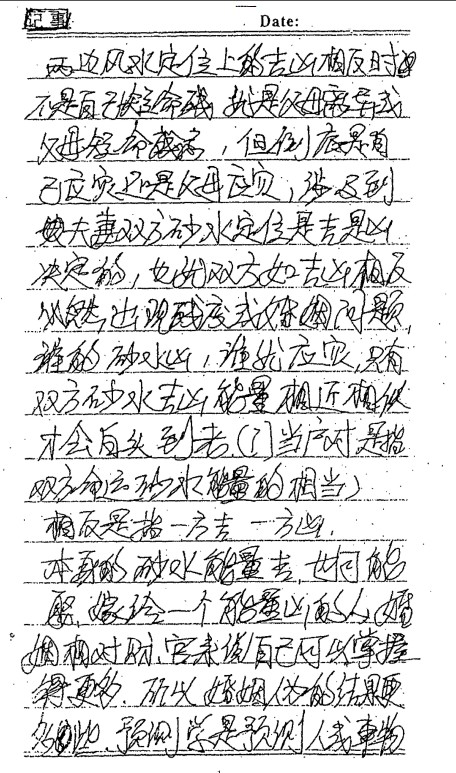 記事 Date:
两边风水定位上的吉凶相反时
不是自己短命残, 就是父母离异或
父母短命残病, 但到底是自
己应灾还是父母应灾, 涉及到
夫妻双方砂水定位是吉是凶
决定的, 也说双方如吉凶相反
必然出现残疾或婚姻问题,
谁的砂水凶, 谁就应灾, 只有
双方砂水吉凶能量相近相似
才会白头到老.(门当户对是指
双方命运砂水能量的相当)
相反是指一方吉一方凶.
本身的砂水能量吉, 也可能
娶、嫁给一个能量凶的人, 婚
姻相对时, 自己可以掌握
得更多. 所以婚姻的结果更
预测学是预测人或事物